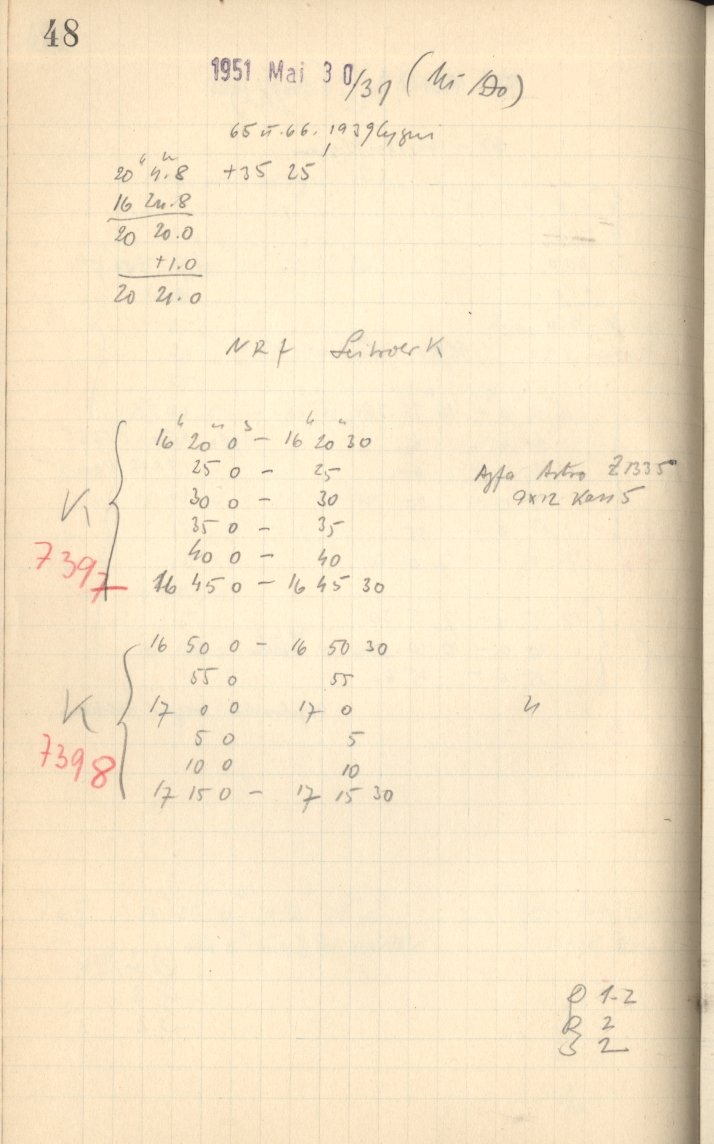 48
1951 Mai 30/31 (Mi/Do)
65 u. 66. 1939 Cygni
20ʰ 4.ᵐ8 +35 25'
16 20.8
20 20.0
+1.0
20 21.0
NRf K
16ʰ 20ᵐ 0ˢ – 16ʰ 20ᵐ 30
25 0 – 25
Agfa Astro Z1335
30 0 – 30
9x12 Kass 5
K
35 0 – 35
40 0 – 40
7397
16 45 0 – 16 45 30
16 50 0 – 16 50 30
55 0 55
K
17 0 0 17 0
5 0 5
7398
10 0 10
17 15 0 – 17 15 30
D 1-2
R 2
S 2